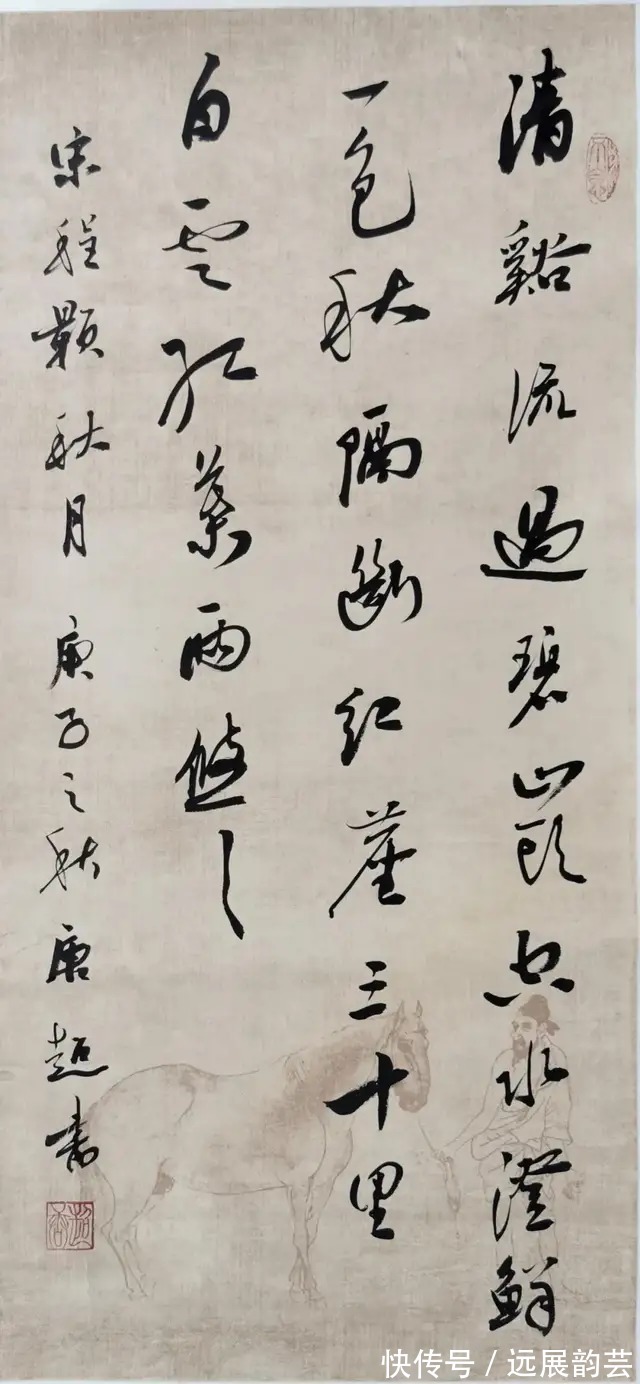 清谿流過碧山頭空水澄鮮
一色秋隔斷紅塵三十里
白雲紅葉兩悠々
宋程顥秋月庚子之秋唐超書
快传号 / 远展韵芸